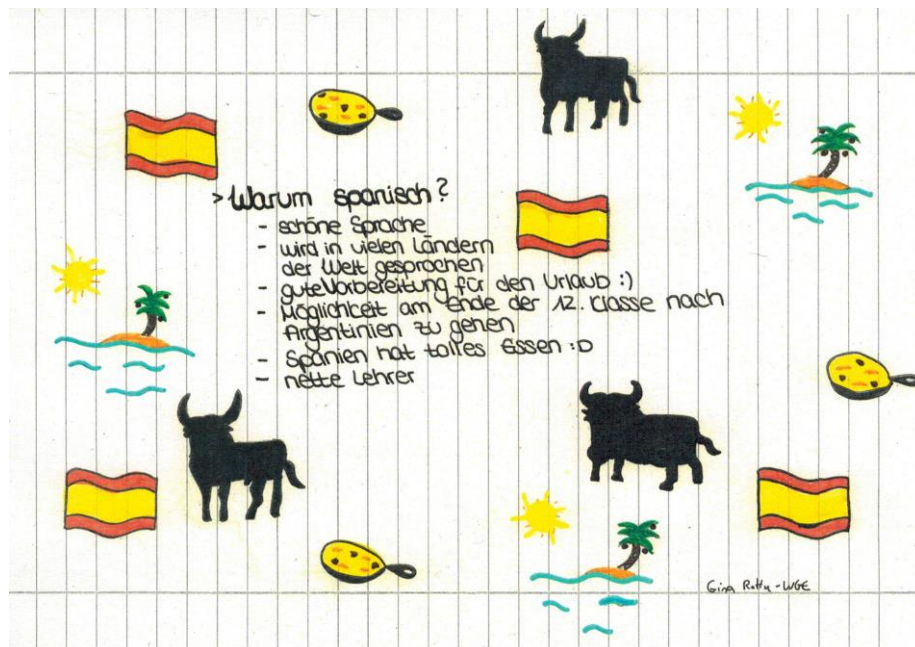 > Warum spanisch?
- schöne Sprache
- wird in vielen Ländern
der Welt gesprochen
- gute Vorbereitung für den Urlaub :)
- Möglichkeit am Ende der 12. Klasse nach
Argentinien zu gehen
- Spanien hat tolles Essen :D
- nette Lehrer
Gina - WGE